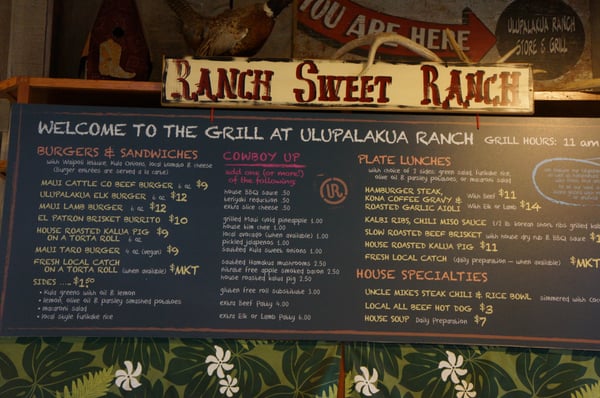 YOU ARE HERE
ULUPALAKUA RANCH
STORE & GRILL
RANCH SWEET RANCH
WELCOME TO THE GRILL AT ULUPALAKUA RANCH
GRILL HOURS: 11 am
BURGERS & SANDWICHES
with Waipoli lettuce, Kula Onions, local tomato & cheese
(Burger entrées are served a la carte)
MAUI CATTLE CO BEEF BURGER 6 oz $9
ULUPALAKUA ELK BURGER 6 oz $12
MAUI LAMB BURGER 6 oz $12
EL PATRON BRISKET BURRITO $10
HOUSE ROASTED KALUA PIG $9
ON A TORTA ROLL 6 oz
MAUI TARO BURGER 4 oz (vegan) $9
FRESH LOCAL CATCH
ON A TORTA ROLL (when available) $MKT
SIDES ..... $1.50
• Kula greens with oil & lemon
• lemon, olive oil & parsley smashed potatoes
• macaroni salad
• local style furikake rice
COWBOY UP
add one (or more!)
of the following
house BBQ sauce .50
teriyaki reduction .50
extra slice cheese .50
grilled Maui Gold pineapple 1.00
house kim chee 1.00
local avocado (when available) 1.00
pickled jalapenos 1.00
sautéed Kula sweet onions 1.00
sautéed Hamakua mushrooms 2.50
nitrate free apple smoked bacon 2.50
house roasted kalua pig 2.50
gluten free roll substitute 1.00
extra Beef Patty 4.00
extra Elk or Lamb Patty 6.00
UR
PLATE LUNCHES
with choice of 2 sides: green salad, furikake rice,
olive oil & parsley potatoes, or macaroni salad
HAMBURGER STEAK,
KONA COFFEE GRAVY & With Beef $11
ROASTED GARLIC AIOLI With Elk or Lamb $14
KALBI RIBS, CHILI MISO SAUCE 1/2 lb korean short ribs grilled
SLOW ROASTED BEEF BRISKET with house dry rub & BBQ sauce
HOUSE ROASTED KALUA PIG $11
FRESH LOCAL CATCH (daily preparation — when available) $MKT
HOUSE SPECIALTIES
UNCLE MIKE'S STEAK CHILI & RICE BOWL simmered with
LOCAL ALL BEEF HOT DOG $3
HOUSE SOUP Daily Preparation $7